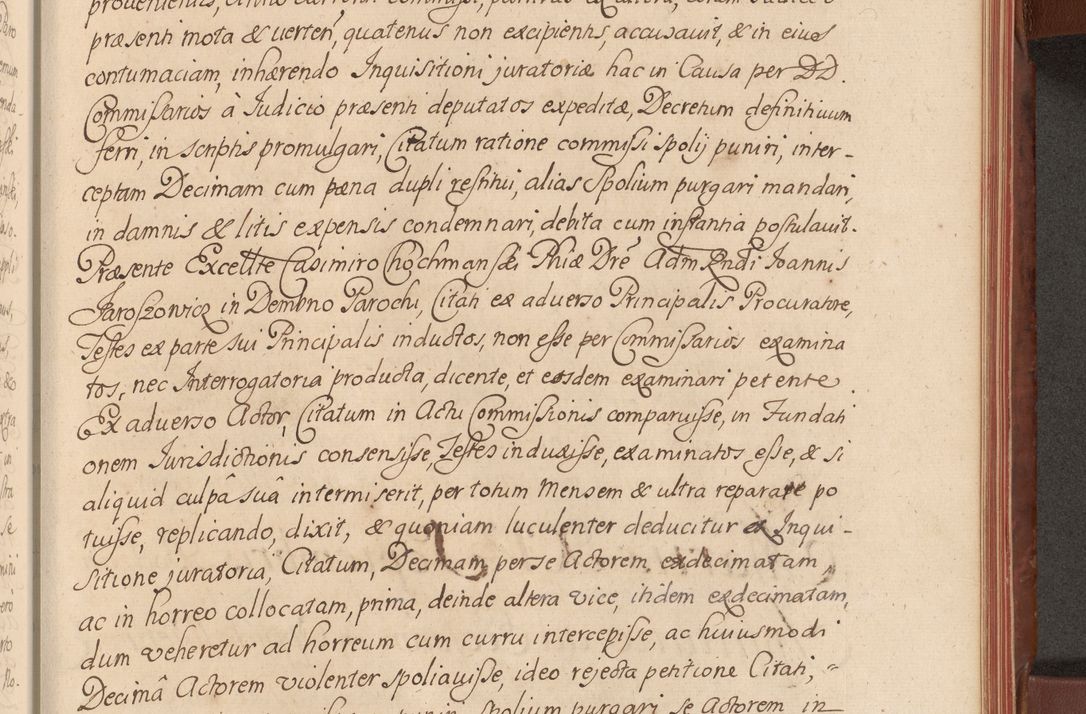 præsenti mota & verten, quatenus non excipientis, accusavit, & in eius
contumaciam, inhærendo Inquisitioni juratoriæ hac in Causa per DD.
Commissarios à Iudicio præsenti deputatos expeditæ, Decretum definitivum
ferri, in scriptis promulgari, Citatum ratione commissi spolij puniri, inter-
ceptam Decimam cum pæna dupli restitui, alias Spolium purgari mandari,
in damnis & litis expensis condemnari, debita cum instantia postulavit.
Præsente Excellte Casimiro Chochmanski Phiæ Dre Adm Rndi Ioannis
Jaroszowicz in Dembno Parochi, Citati ex adverso Principalis Procuratore,
Testes ex parte sui Principalis inductos, non esse per Commissarios examina
tos, nec Interrogatoria producta, dicente, et eosdem examinari petente.
Ex adverso Actor, Citatum in Actu Commissionis comparuisse, in Fundati
onem Iurisdictionis consensisse, Testes induxisse, examinatos esse, & si
aliquid culpâ suâ intermiserit, per totum Mensem & ultra reparare po
tuisse, replicando, dixit, & quoniam luculenter deducitur ex Inqui-
sitione juratoria, Citatum, Decimam per se Actorem exdecimatam
ac in horreo collocatam, prima, deinde altera vice, itidem exdecimatam,
dum veheretur ad horreum cum curru intercepisse, ac huiusmodi
Decimâ Actorem violenter spoliavisse, ideo rejecta petitione Citati,
Spolium purgari se Actorem in